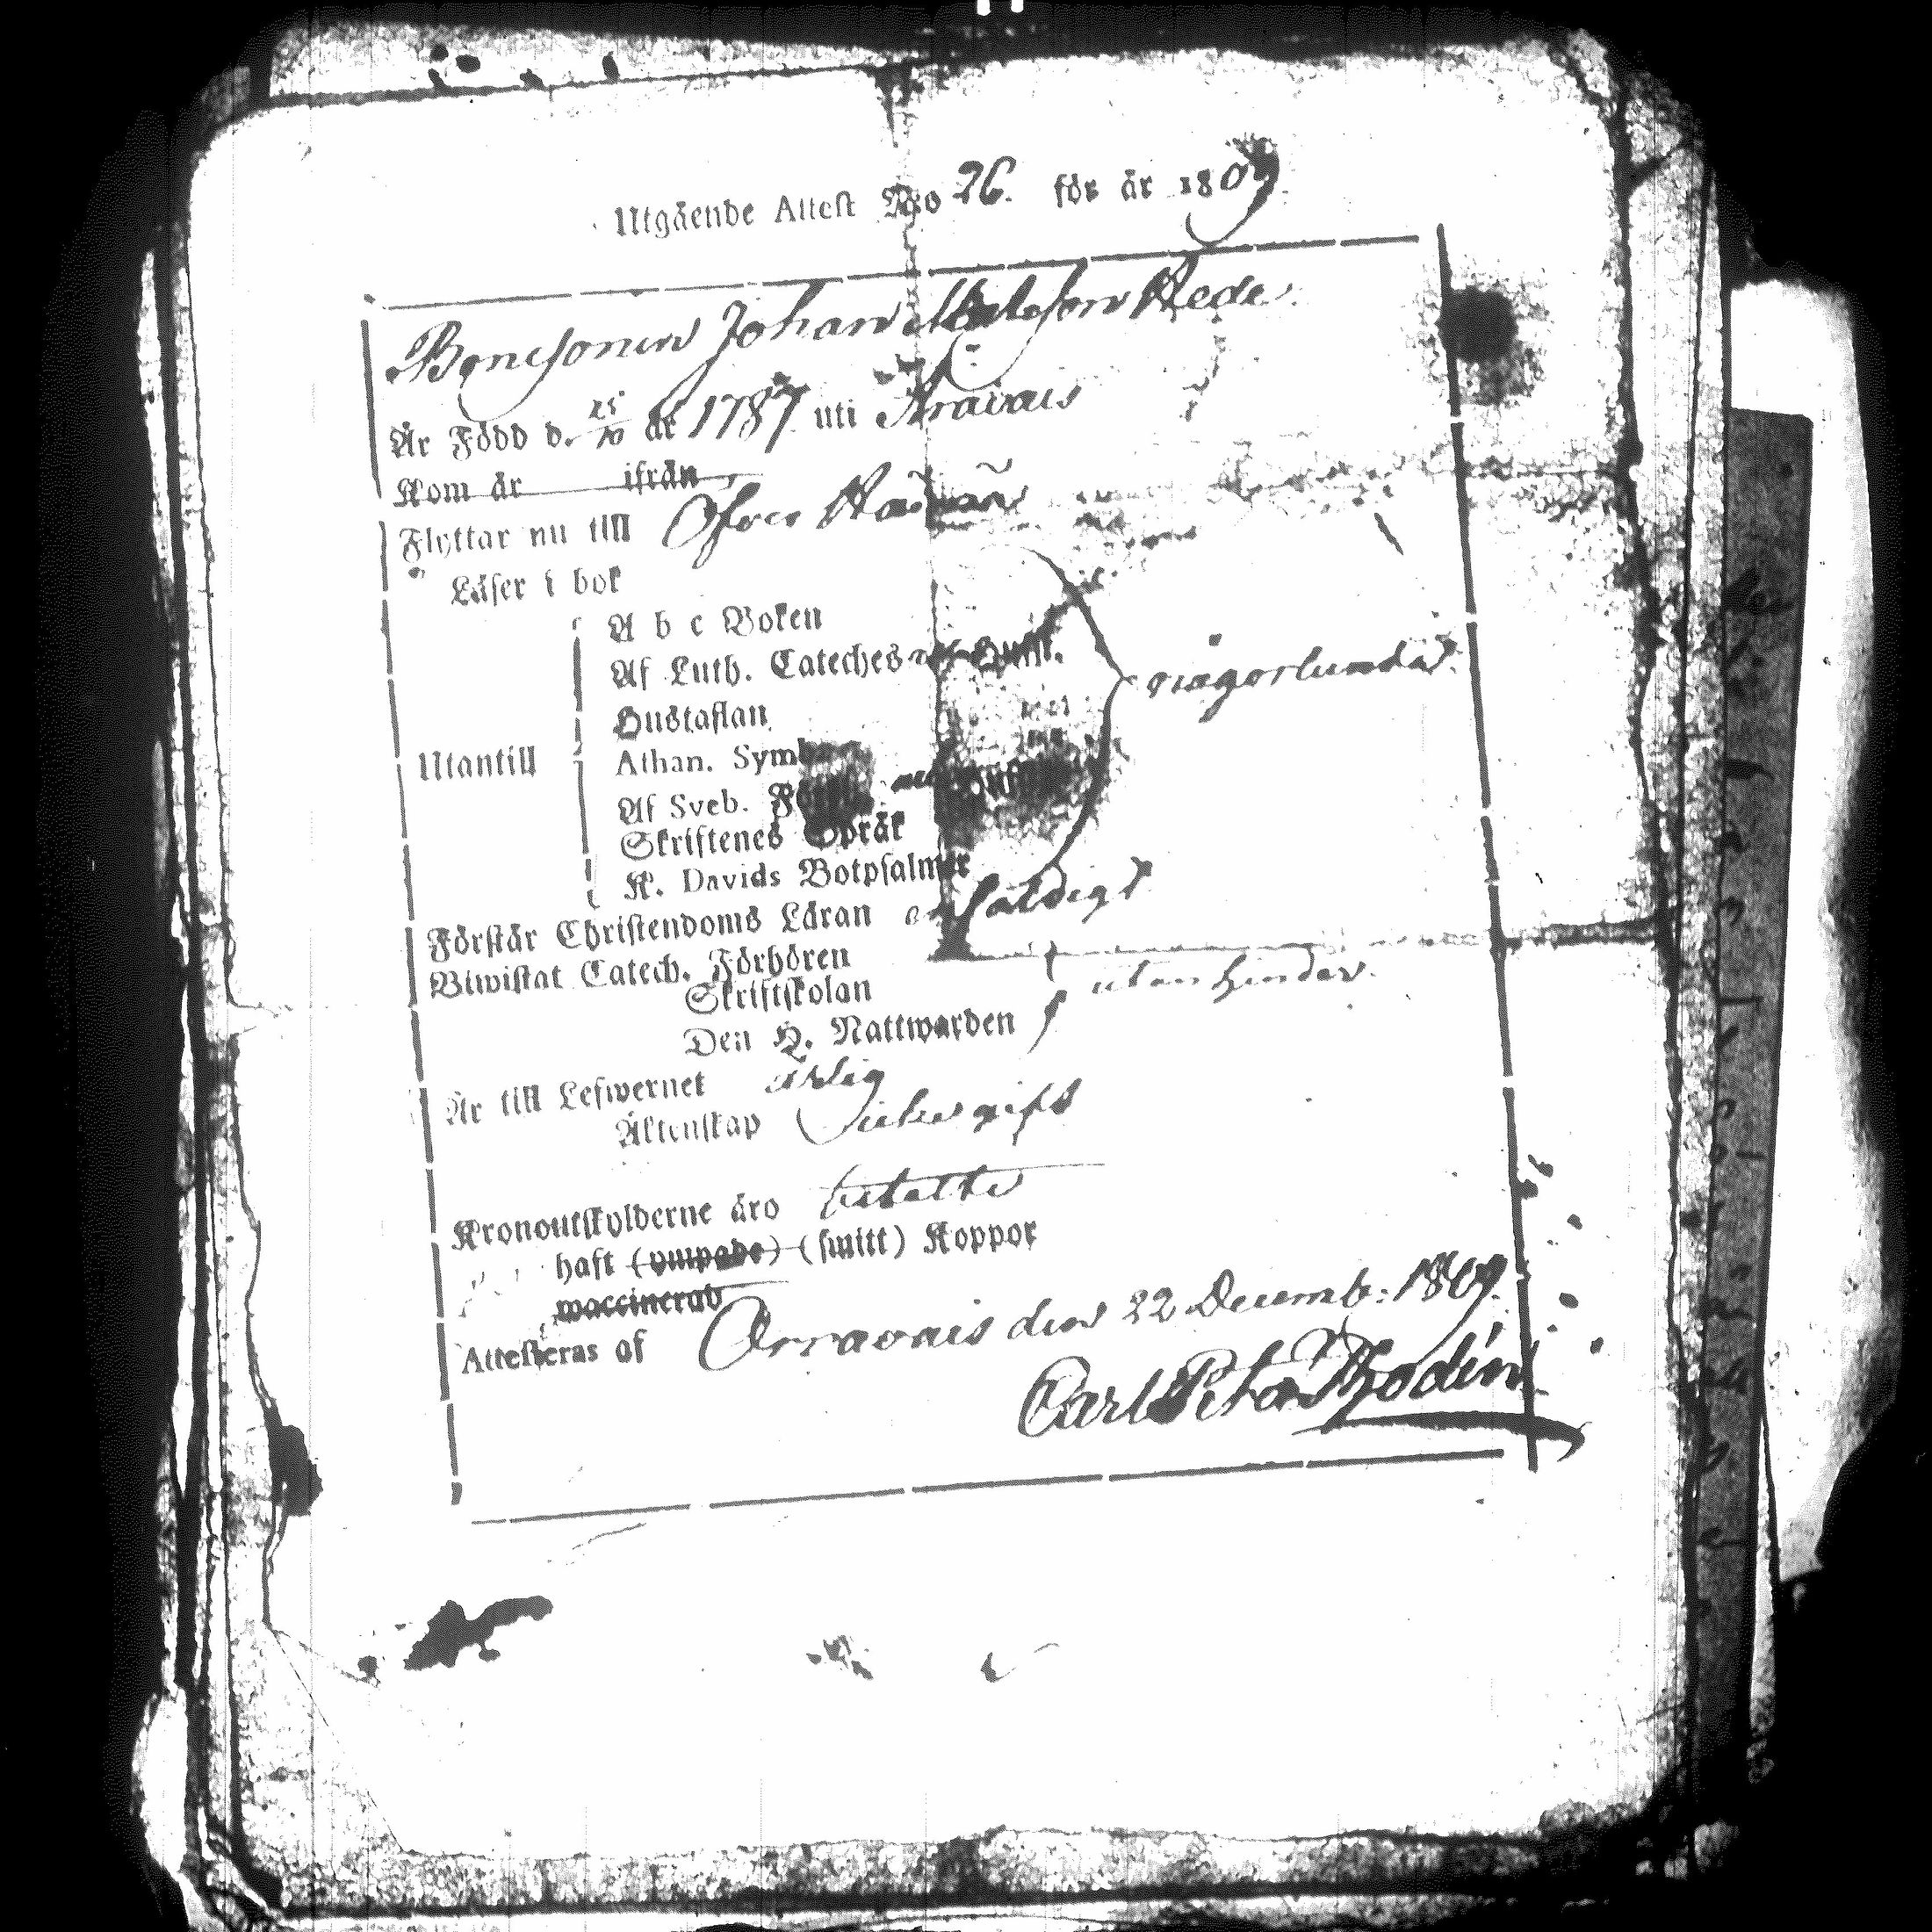 Utgående Attest No 26. för år 1809
Bonesonen Johan Matsson Hede
Är Född d. 25/10 år 1787 uti Åravais
Kom år ifrån
Flyttar nu till Öfver
Läser i bok
A b c Boken
Af Luth. Cateches
någorlunda
Hustaflan
Utantill Athan. Symb
Af Sveb.
Skriftenes Språk
K. Davids Botpsalmer
Förstår Christendoms Läran enfaldigt
Biwistat Catech. Förhören
Skriftskolan utan hinder
Den H. Nattwarden
Är till Lefwernet ärlig
Äktenskap icke gift
Kronoutskylderne äro betalte
haft (ympade) (smitt) Koppor
waccinerad
Attesteras af Orravais den 22 Decemb: 1809.
Carl Petr Thodén